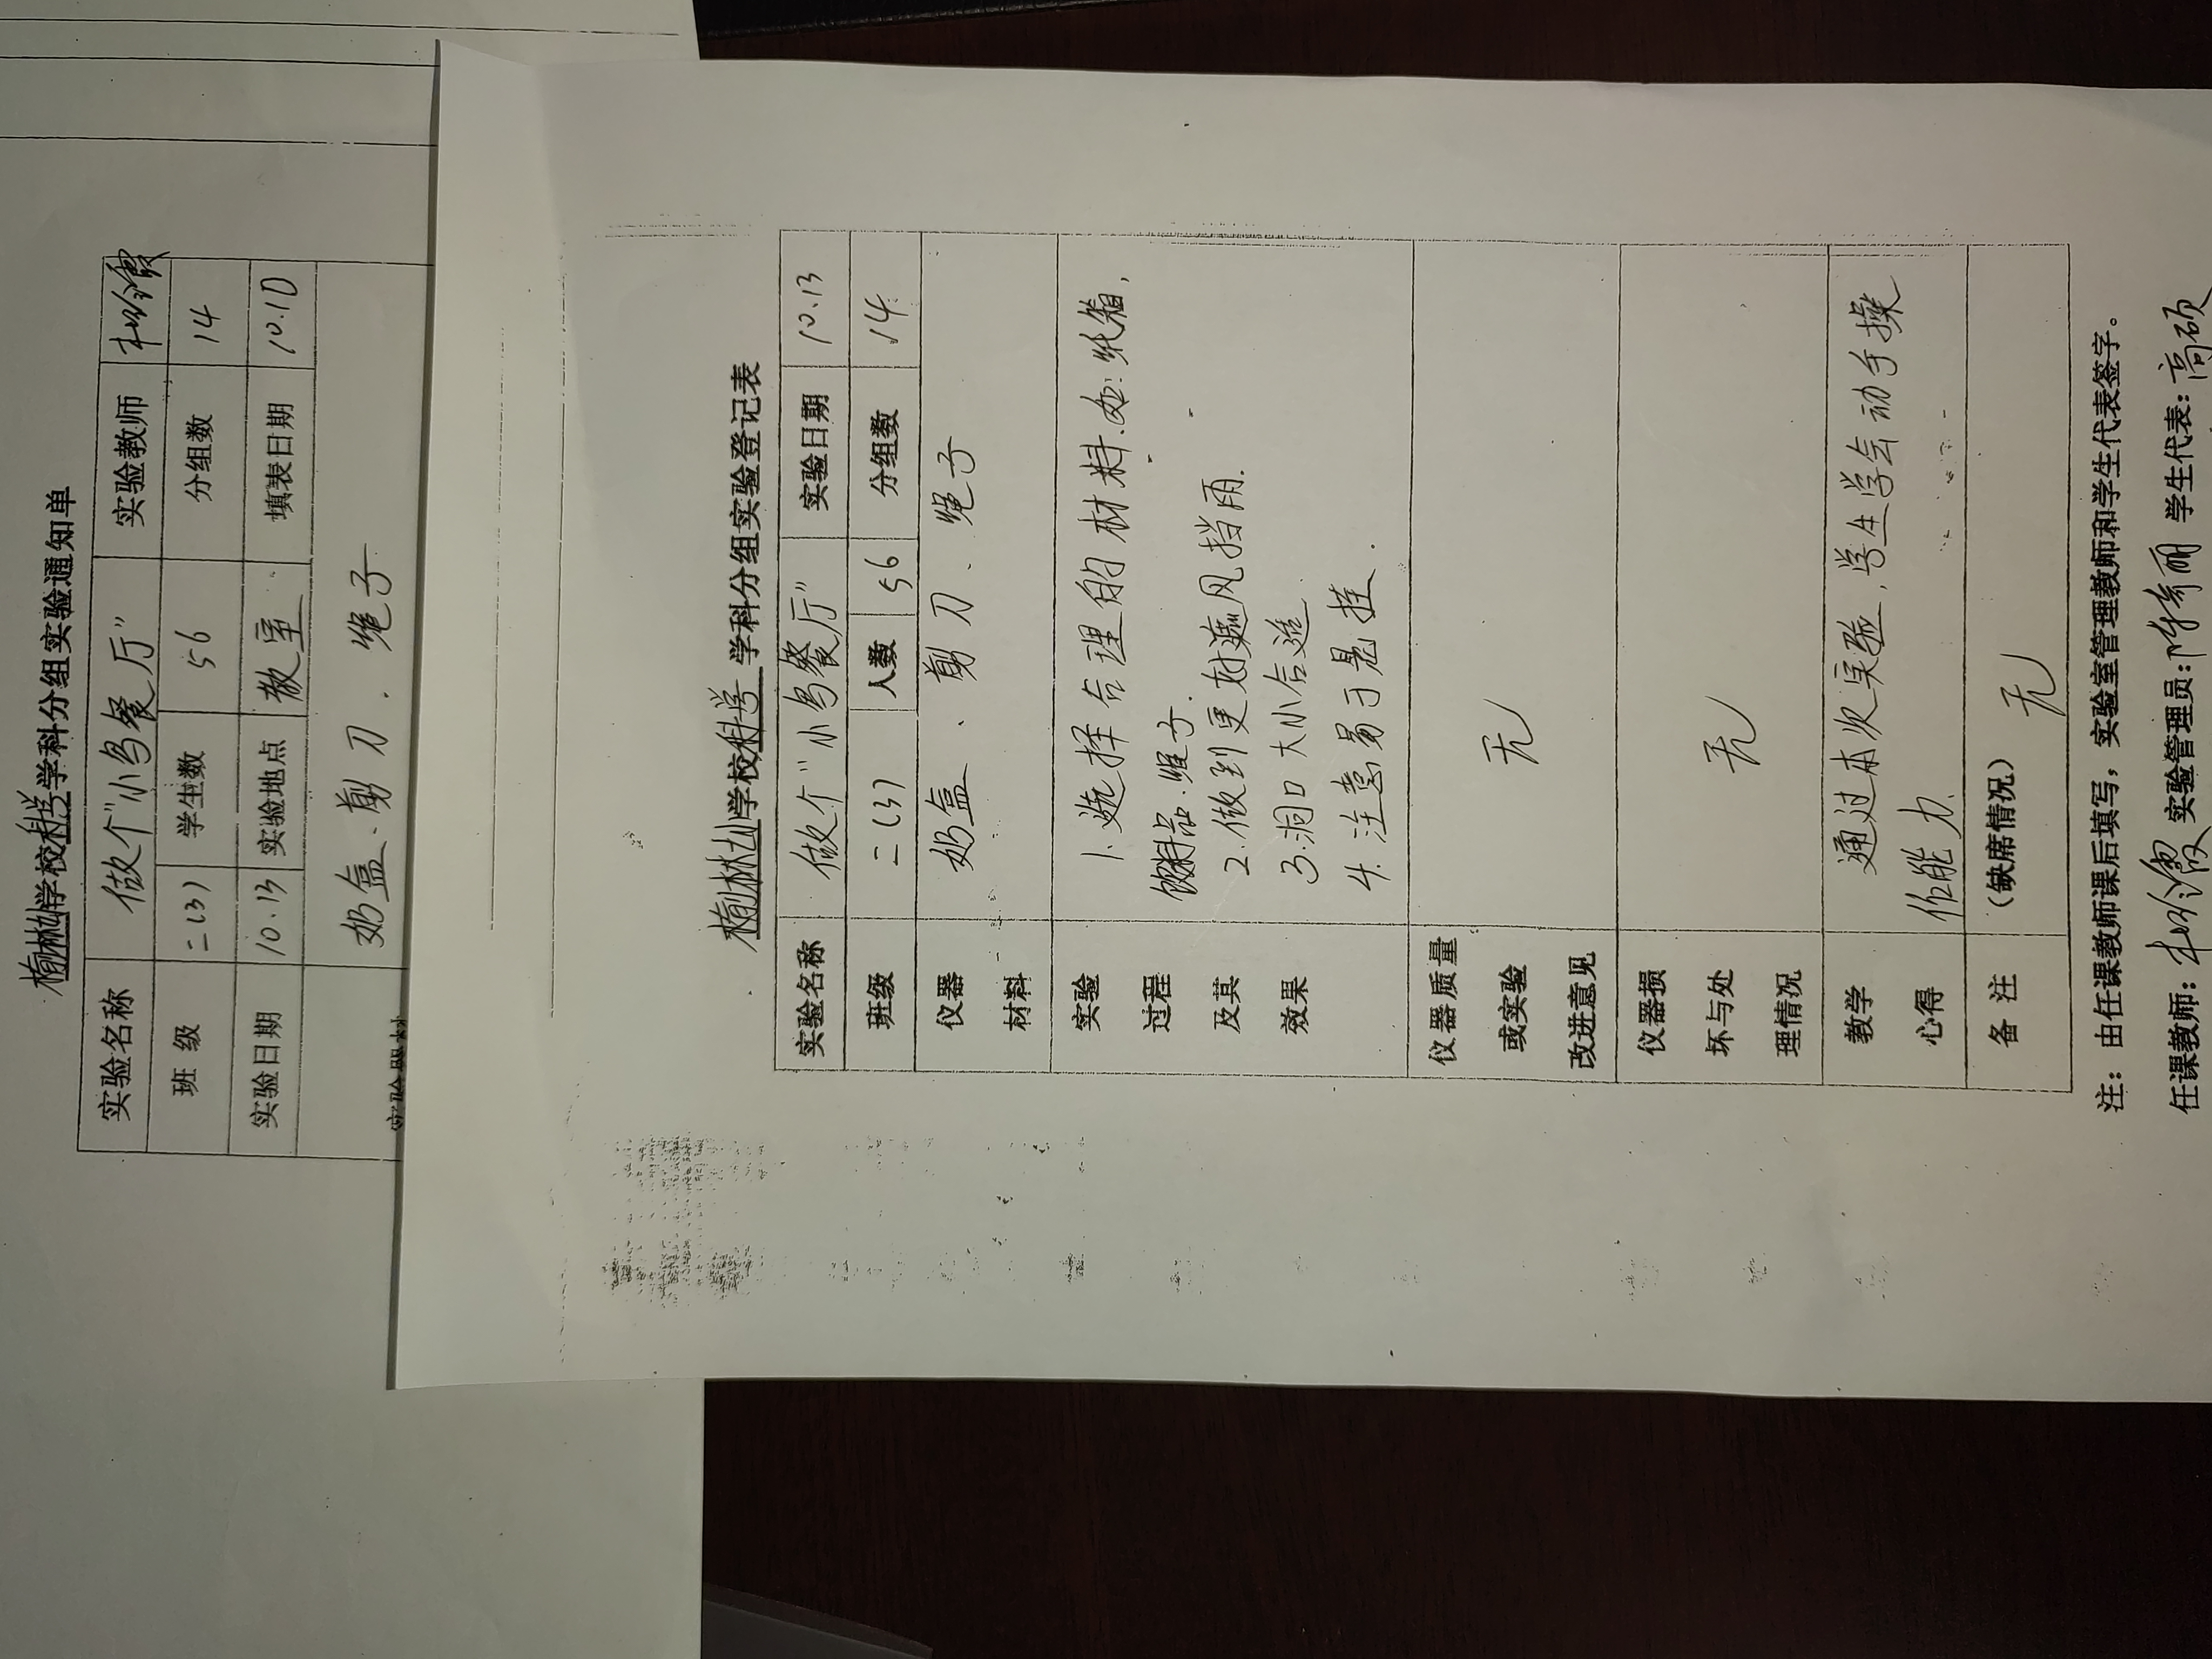 学校科学学科分组实验通知单
实验名称 做个"小鸟餐厅" 实验教师
班级 二(3) 学生数 56 分组数 14
实验日期 10.13 实验地点 教室 填表日期 10.10
奶盒、剪刀、绳子
学校科学学科分组实验登记表
实验名称 做个"小鸟餐厅" 实验日期 10.13
班级 二(3) 人数 56 分组数 14
仪器材料 奶盒、剪刀、绳子
实验过程及其效果
1.选择合理的材料.如:纸箱,
绳子.
2.做到更好遮风挡雨.
3.洞口大小合适
4.注意易于悬挂.
仪器质量或实验改进意见 无
仪器损坏与处理情况 无
教学心得 通过本次实验,学生学会动手操
作能力.
备注 (缺席情况) 无
注:由任课教师课后填写,实验室管理教师和学生代表签字。
任课教师: 实验管理员: 学生代表:高硕